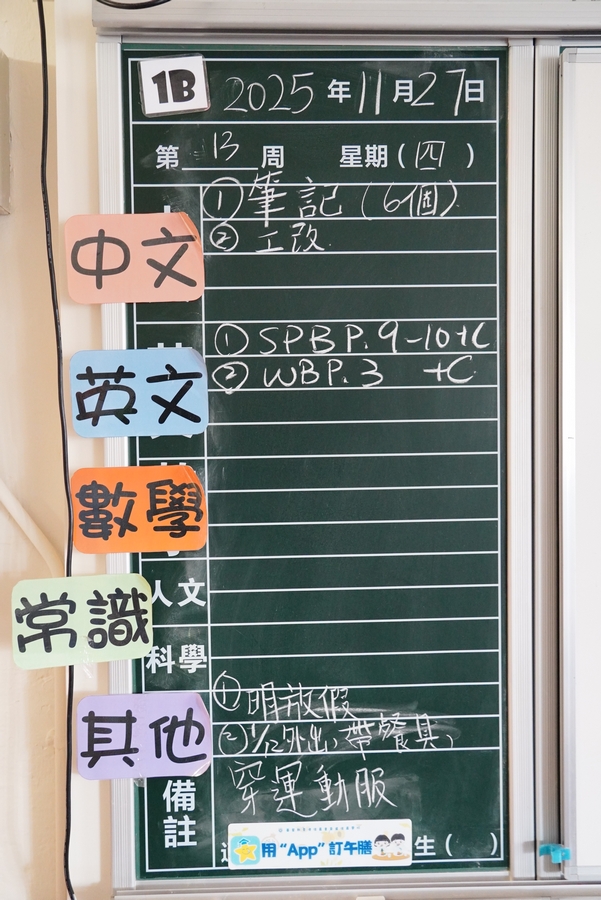 1B 2025年11月27日
第 13 周 星期(四)
① 筆記(6個)
中文 ② 工改
① SPB P.9-10+C
英文 ② WB P.3 +C
數學
人文
常識
科學
① 明放假
其他 ② 1/12外出,帶餐具,
穿運動服
備註
用“App”訂午膳 生( )